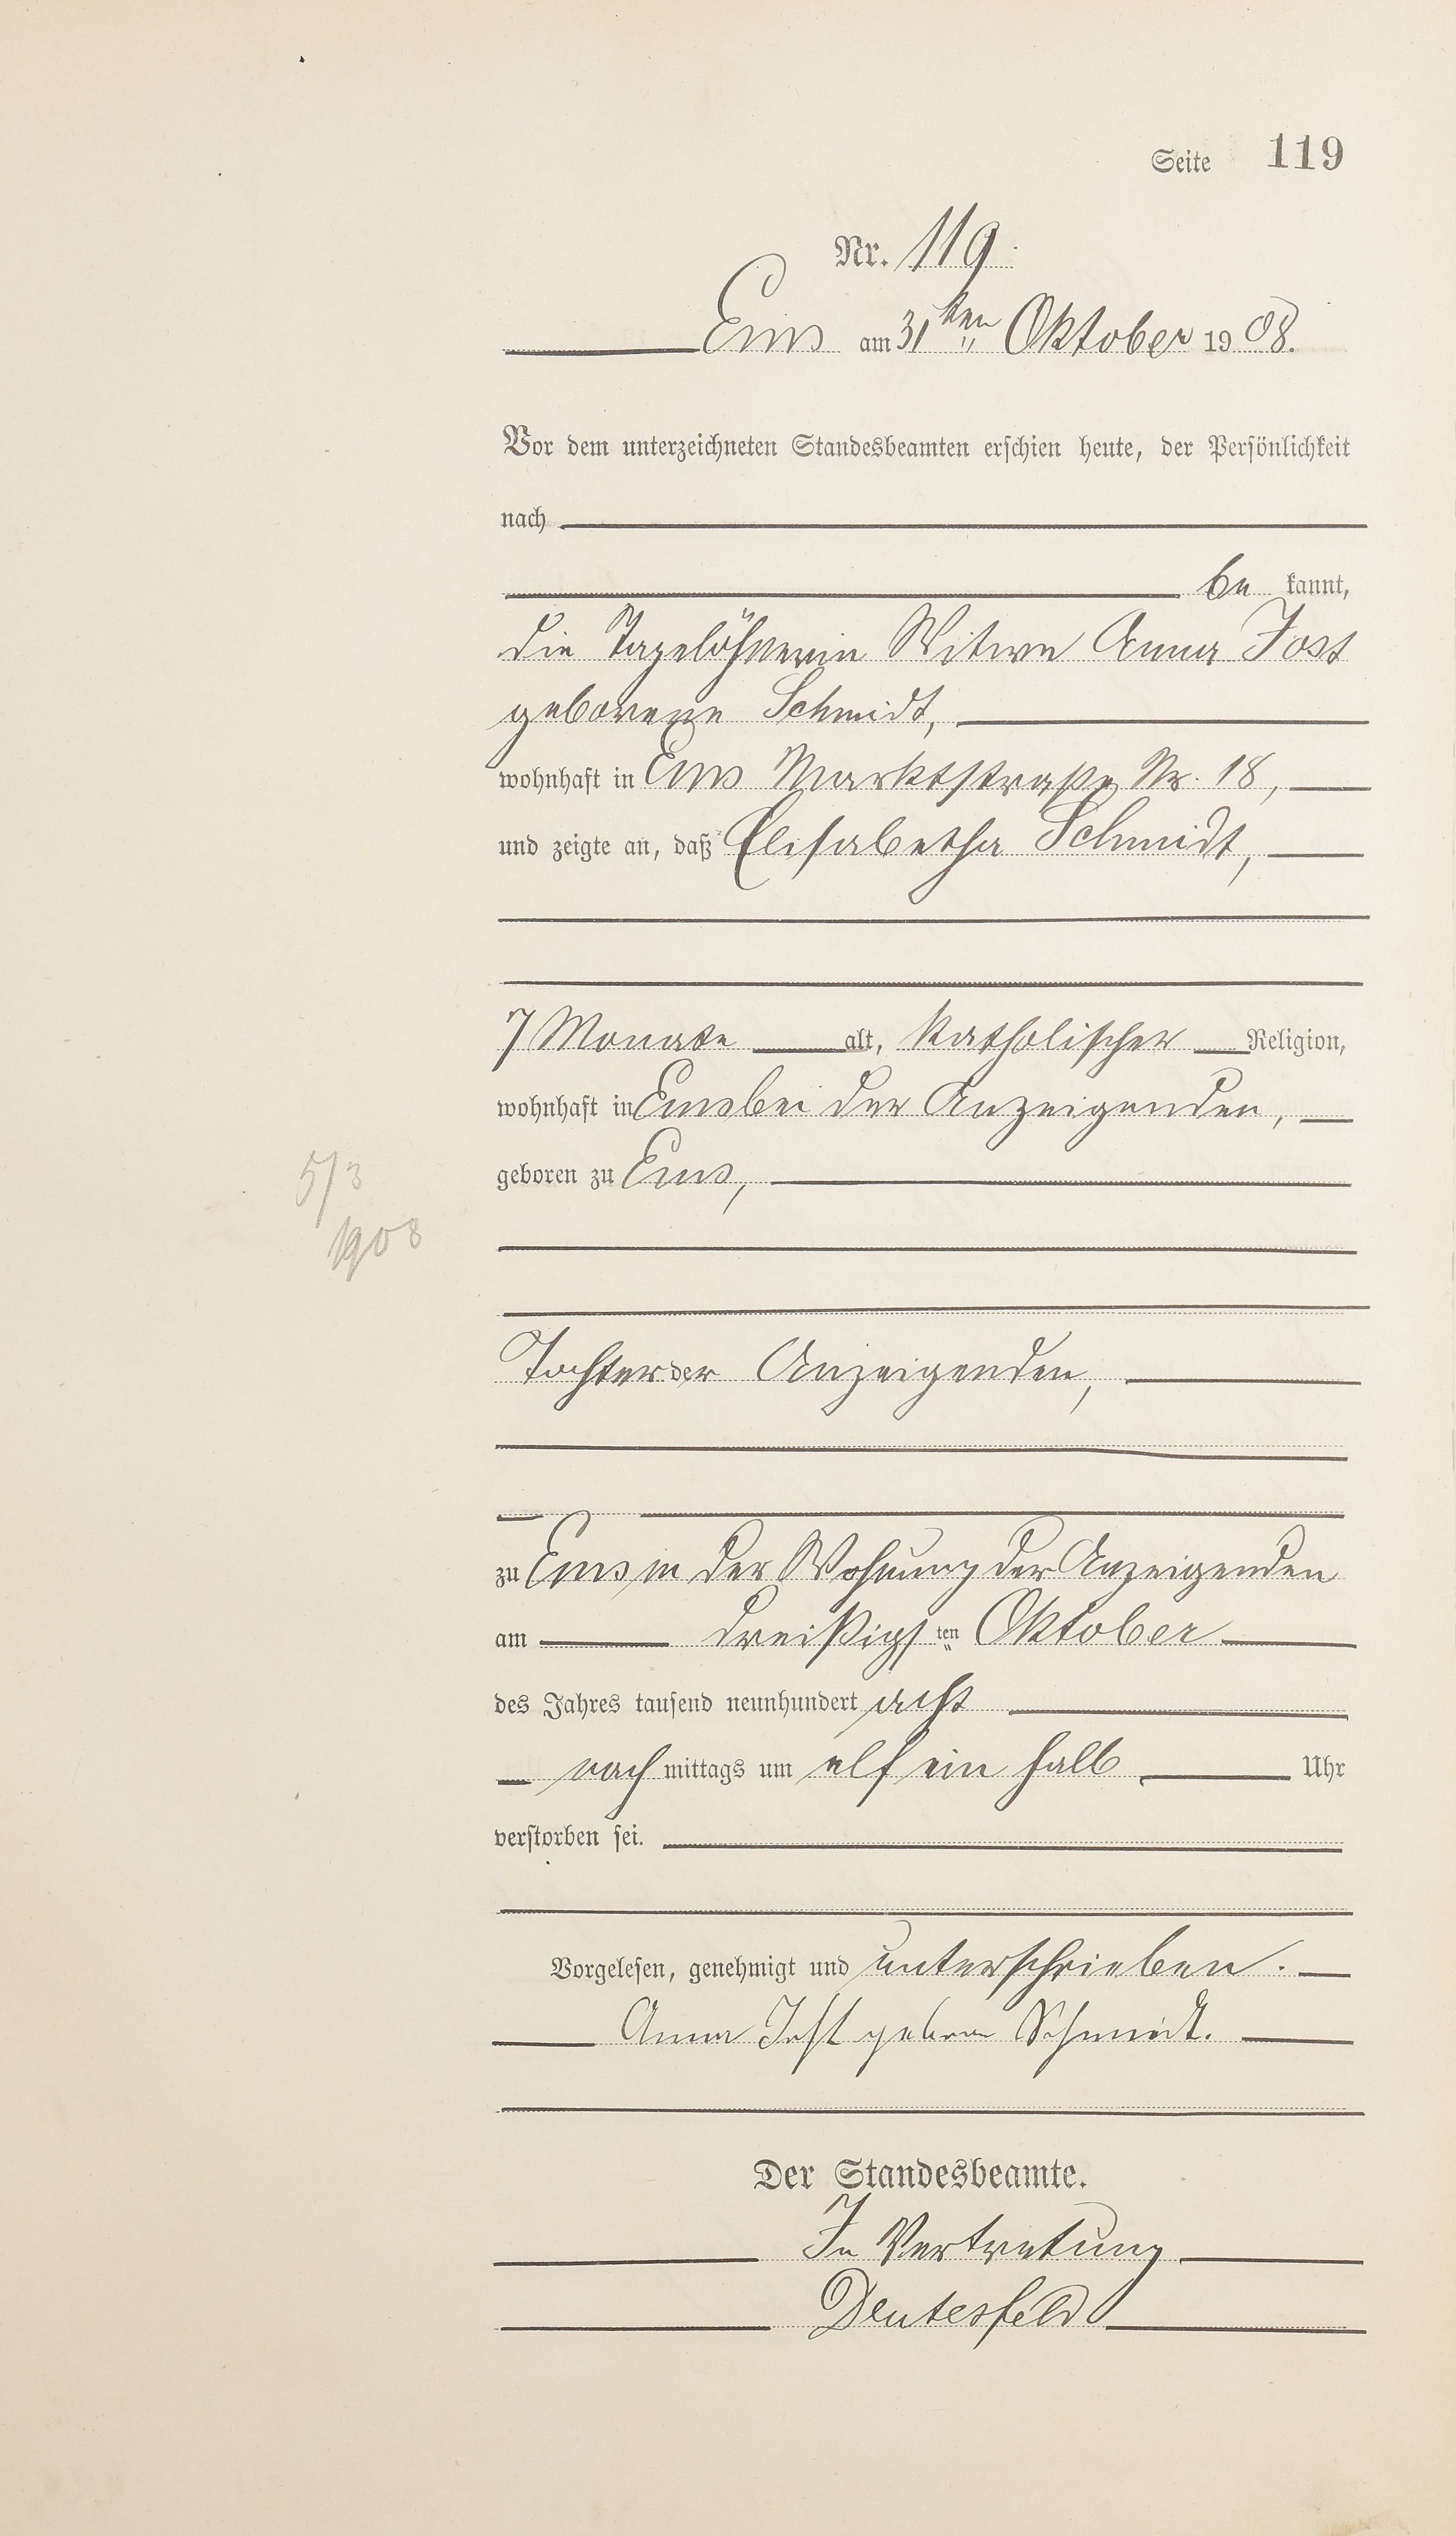 Seite 119
Nr. 119.
Ems am 31ten Oktober 1908.
Vor dem unterzeichneten Standesbeamten erschien heute, der Persönlichkeit
nach
be kannt,
die Tagelöhnerin Witwe Anna Jost
geborene Schmidt,
wohnhaft in Ems Marktstraße Nr. 18,
und zeigte an, daß Elisabetha Schmidt,
7 Monate alt, katholischer Religion,
wohnhaft in Ems bei der Anzeigenden,
5/3
geboren zu Ems,
1908
Tochter der Anzeigenden,
zu Ems in der Wohnung der Anzeigenden
am dreißigsten Oktober
des Jahres tausend neunhundert acht
nach mittags um elf ein halb Uhr
verstorben sei.
Vorgelesen, genehmigt und unterschrieben.
Anna Jost geboren Schmidt.
Der Standesbeamte.
In Vertretung
Deutesfeld